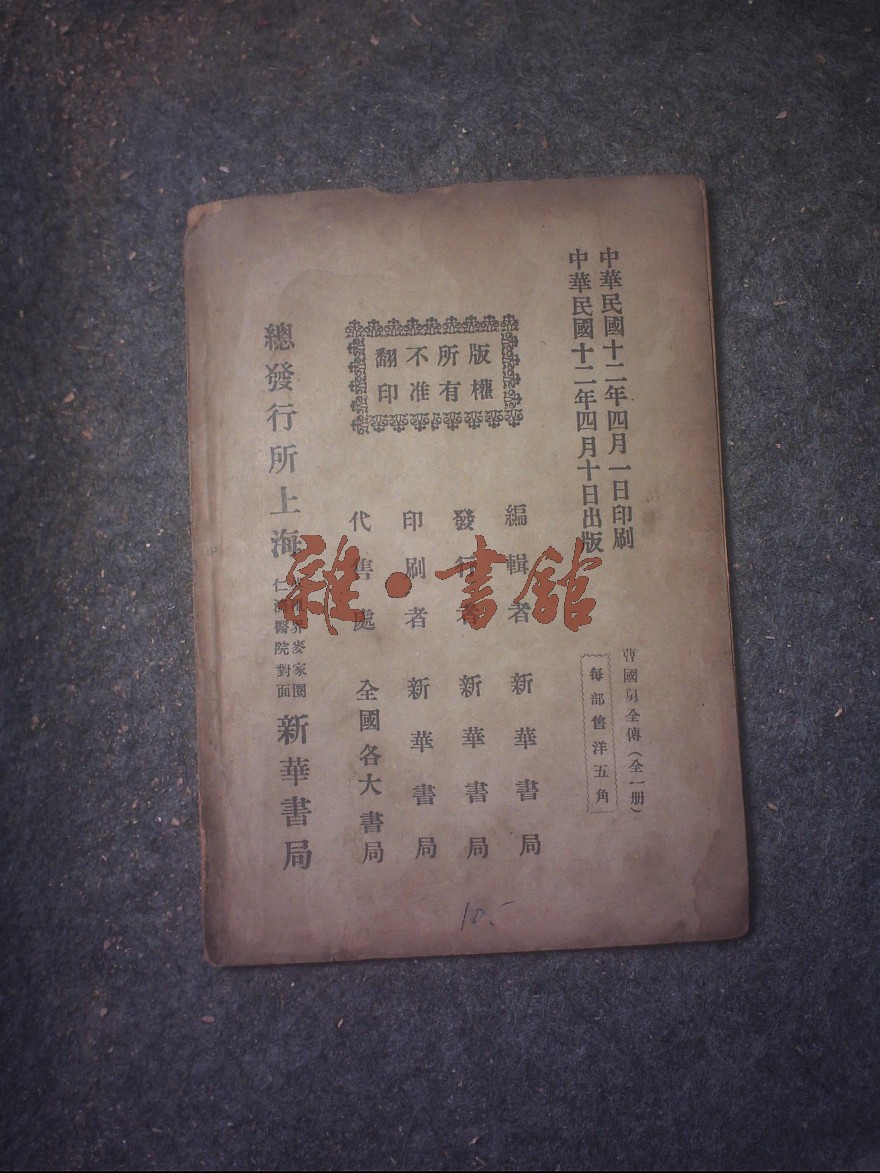 中華民國十二年四月一日印刷
中華民國十二年四月十日出版
曹國舅全傳（全一册）
每部售洋五角
版權
所有
不准
翻印
編輯者 新華書局
發行者 新華書局
印刷者 新華書局
代售處 全國各大書局
總發行所上海
界麥家圈
仁濟醫院對面
新華書局
雜·書舘
10.-